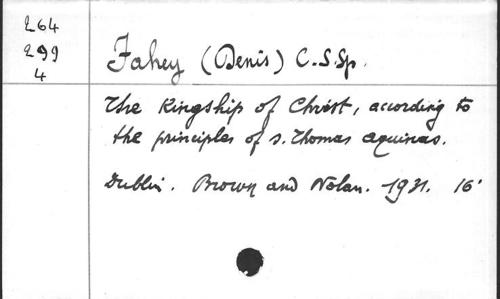 264
299
4
Fahey (Denis) C.S.Sp.
The Kingship of Christ, according to
the principles of s. Thomas Aquinas.
Dublin. Brown and Nolan. 1931. 16°